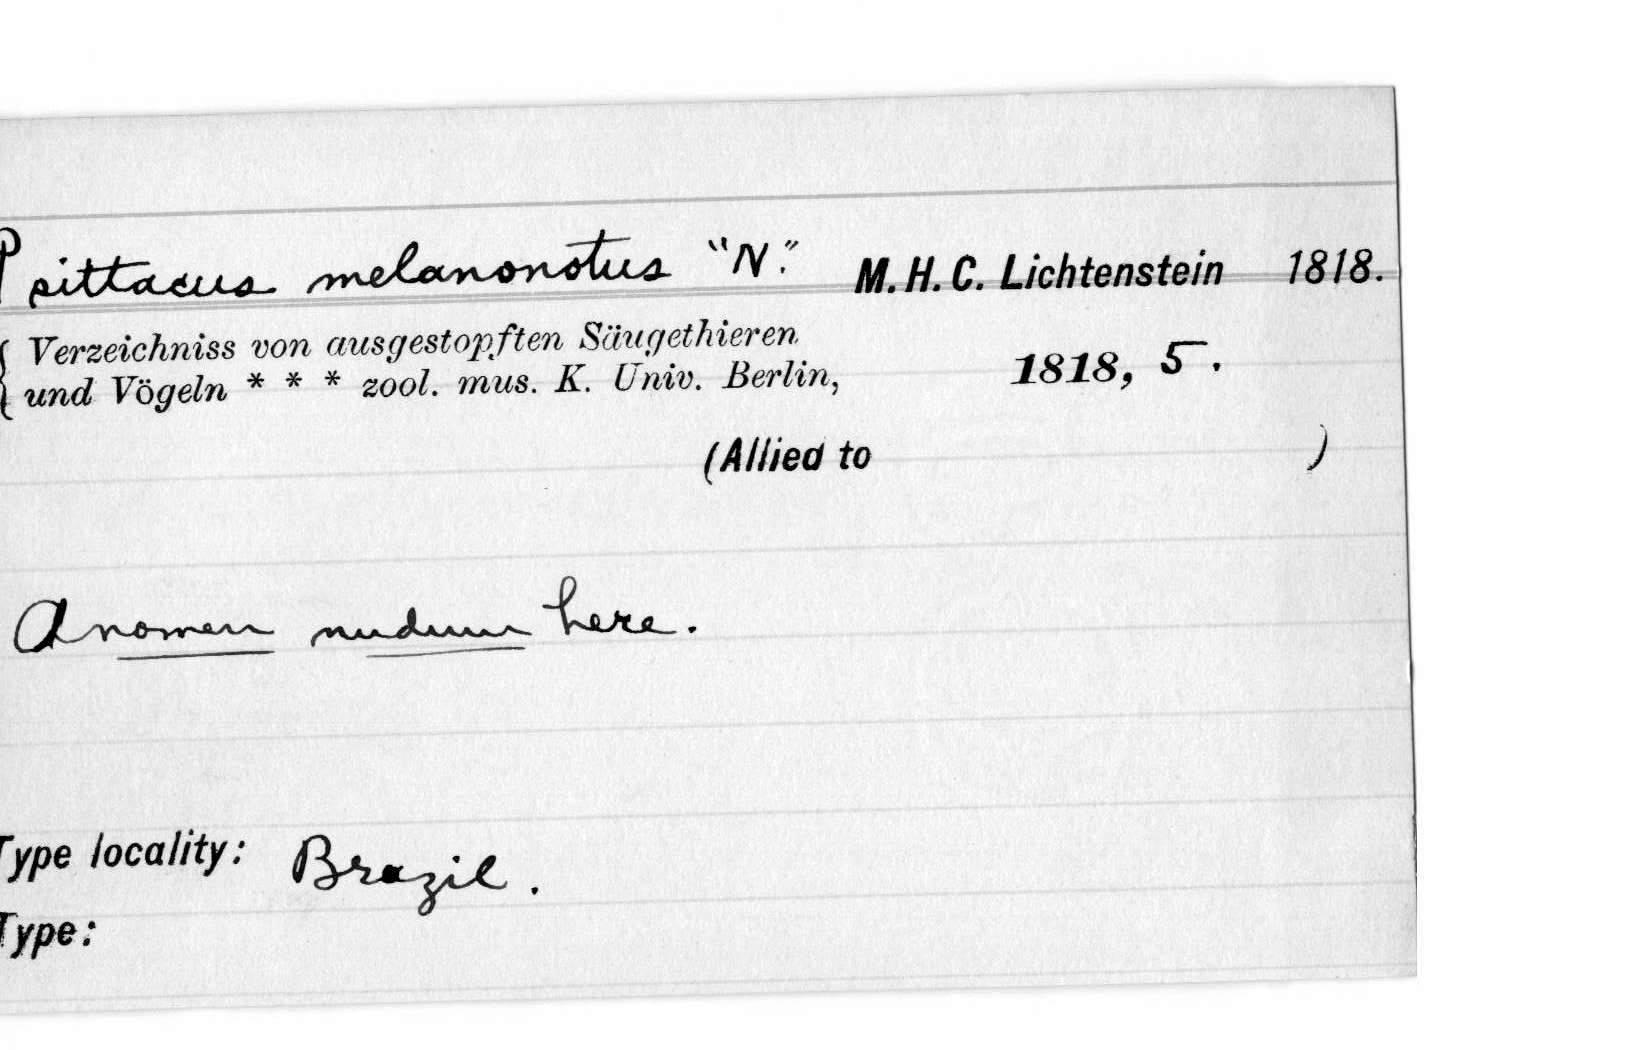 Psittacus melanonotus "N." M. H. C. Lichtenstein 1818.
{ Verzeichniss von ausgestopften Säugethieren
{ und Vögeln * * * zool. mus. K. Univ. Berlin, 1818, 5.
(Allied to )
A nomen nudum here.
Type locality: Brazil.
Type: